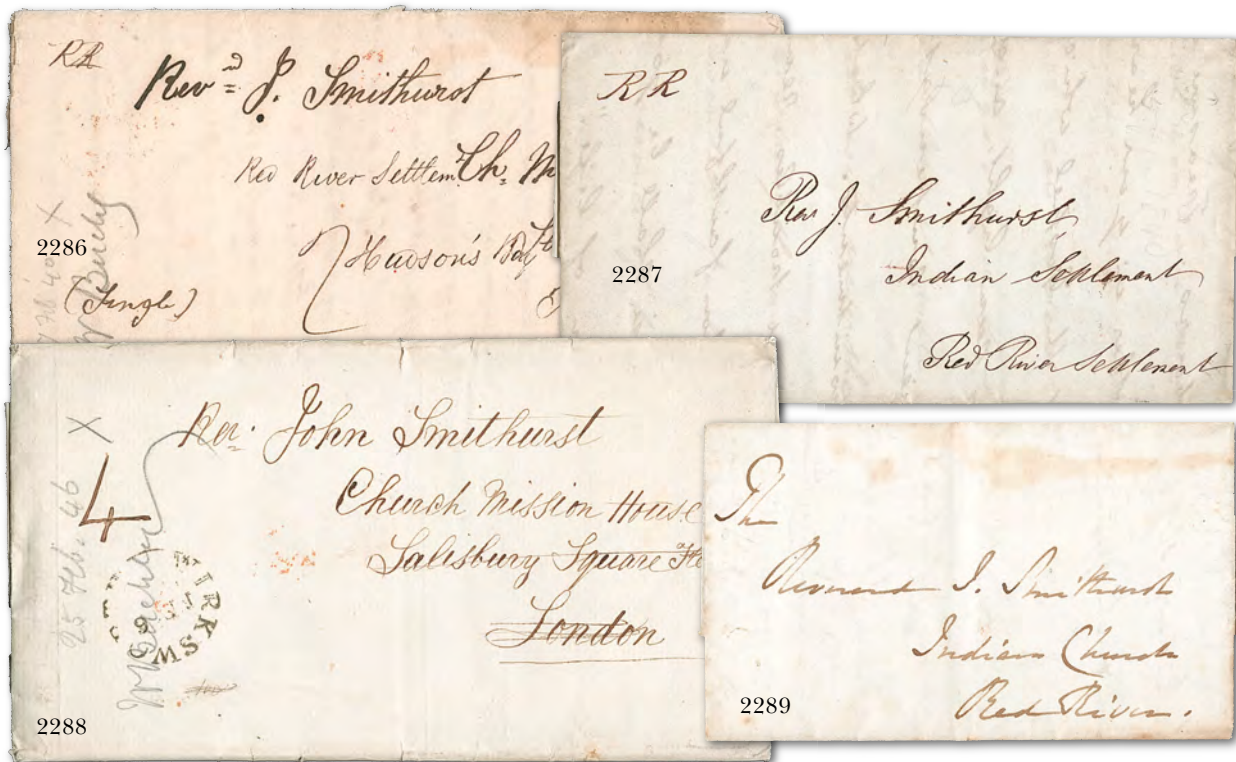 RR
Revd J. Smithurst
Red River Settlem Ch. M
Hudson's Bay
(Single)
2286
RR
Rev J. Smithurst
Indian Settlement
Red River Settlement
2287
Rev. John Smithurst
Church Mission House
Salisbury Square
London
4
25 Feb. 46 X
WIRKSW
2288
The
Reverend J. Smithurst
Indian Church
Red River.
2289